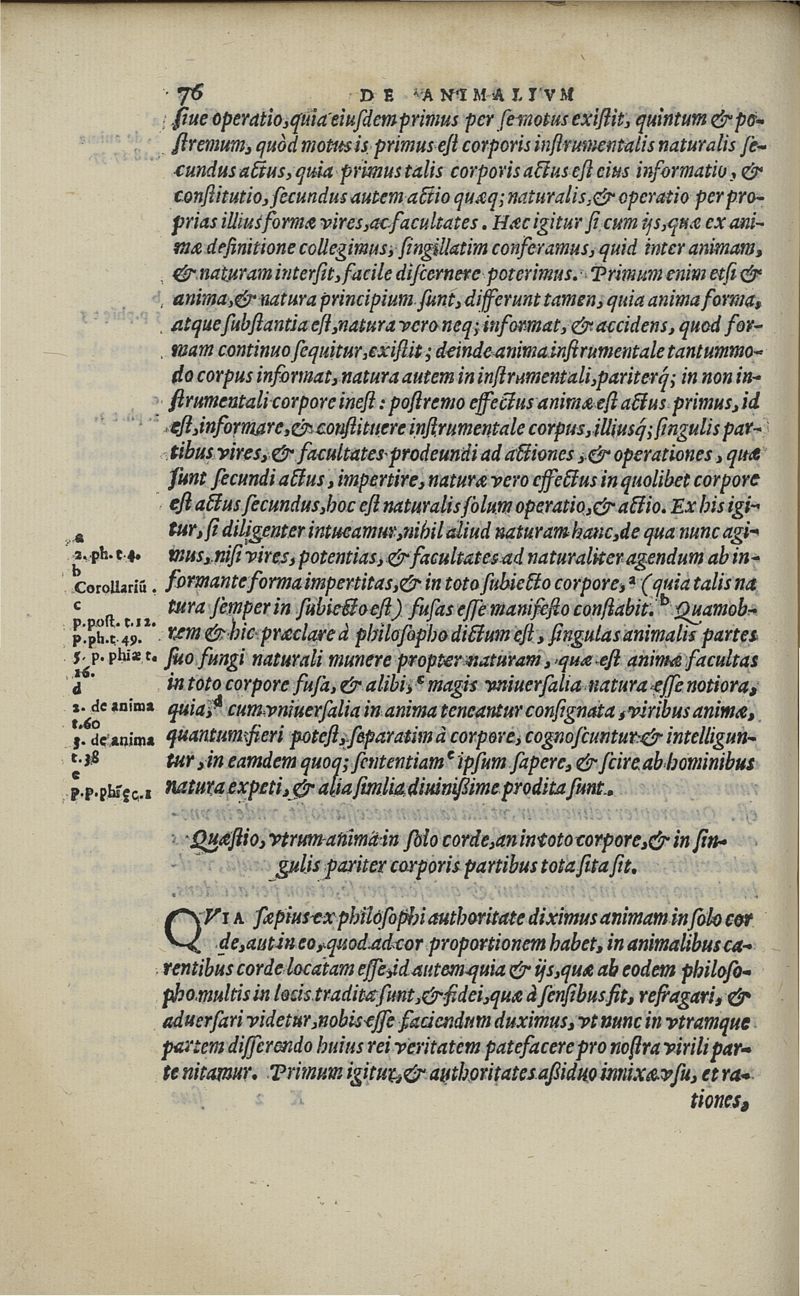 76 DE ANIMALIVM
ſiue operatio, quia eiuſdem primus per ſe motus exiſtit, quintum & po-
ſtremum, quòd motus is primus eſt corporis inſtrumentalis naturalis ſe-
cundus actus, quia primus talis corporis actus eſt eius informatio, &
conſtitutio, ſecundus autem actio quæq; naturalis, & operatio per pro-
prias illius formæ vires, ac facultates. Hæc igitur ſi cum ijs, quæ ex ani-
mæ definitione collegimus, ſingillatim conferamus, quid inter animam,
& naturam interſit, facile diſcernere poterimus. Primum enim etſi &
anima, & natura principium ſunt, differunt tamen, quia anima forma,
atque ſubſtantia eſt, natura vero neq; informat, & accidens, quod for-
mam continuo ſequitur, exiſtit; deinde anima inſtrumentale tantummo-
do corpus informat, natura autem in inſtrumentali, pariterq́; in non in-
ſtrumentali corpore ineſt: poſtremo effectus animæ eſt actus primus, id
eſt, informare, & conſtituere inſtrumentale corpus, illiusq́; ſingulis par-
tibus vires, & facultates prodeundi ad actiones, & operationes, quæ
ſunt ſecundi actus, impertire, naturæ vero effectus in quolibet corpore
eſt actus ſecundus, hoc eſt naturalis ſolum operatio, & actio. Ex his igi-
tur, ſi diligenter intueamur, nihil aliud naturam hanc, de qua nunc agi-
mus, niſi vires, potentias, & facultates ad naturaliter agendum ab in-
formante forma impertitas, & in toto ſubiecto corpore, a (quia talis na
tura ſemper in ſubiecto eſt) fuſas eſſe manifeſto conſtabit. b Quamob-
rem & hic præclare à philoſopho dictum eſt, ſingulas animalis partes
ſuo fungi naturali munere propter naturam, quæ eſt animæ facultas
in toto corpore fuſa, & alibi, c magis vniuerſalia natura eſſe notiora,
quia, d cum vniuerſalia in anima teneantur conſignata, viribus animæ,
quantum fieri poteſt, ſeparatim à corpore, cognoſcuntur & intelligun-
tur, in eamdem quoq; ſententiam e ipſum ſapere, & ſcire ab hominibus
natura expeti, & alia ſimlia diuinißime prodita ſunt.
a
2. ph. t. 4.
b
Corollariū.
c
p. poſt. t. 12.
p. ph. t. 49.
5. p. phiæ t.
16.
d
2. de anima
t. 60
3. de anima
t. 38
e
p. p. phię c. 1
Quæſtio, vtrum anima in ſolo corde, an in toto corpore, & in ſin-
gulis pariter corporis partibus tota ſita ſit.
QVIA ſæpius ex philoſophi authoritate diximus animam in ſolo cor
de, aut in eo, quod ad cor proportionem habet, in animalibus ca-
rentibus corde locatam eſſe, id autem quia & ijs, quæ ab eodem philoſo-
pho multis in locis tradita ſunt, & fidei, quæ à ſenſibus fit, refragari, &
aduerſari videtur, nobis eſſe faciendum duximus, vt nunc in vtramque
partem differendo huius rei veritatem patefacere pro noſtra virili par-
te nitamur. Primum igitur, & authoritates aßiduo innixæ vſu, et ra-
tiones,